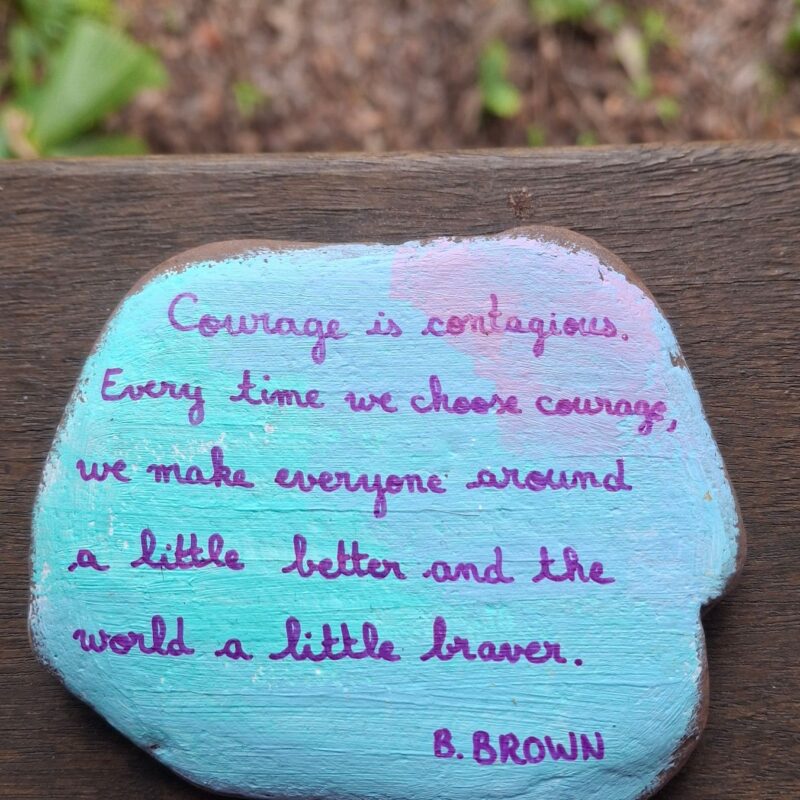 Courage is contagious.
Every time we choose courage,
we make everyone around
a little better and the
world a little braver.
B. BROWN